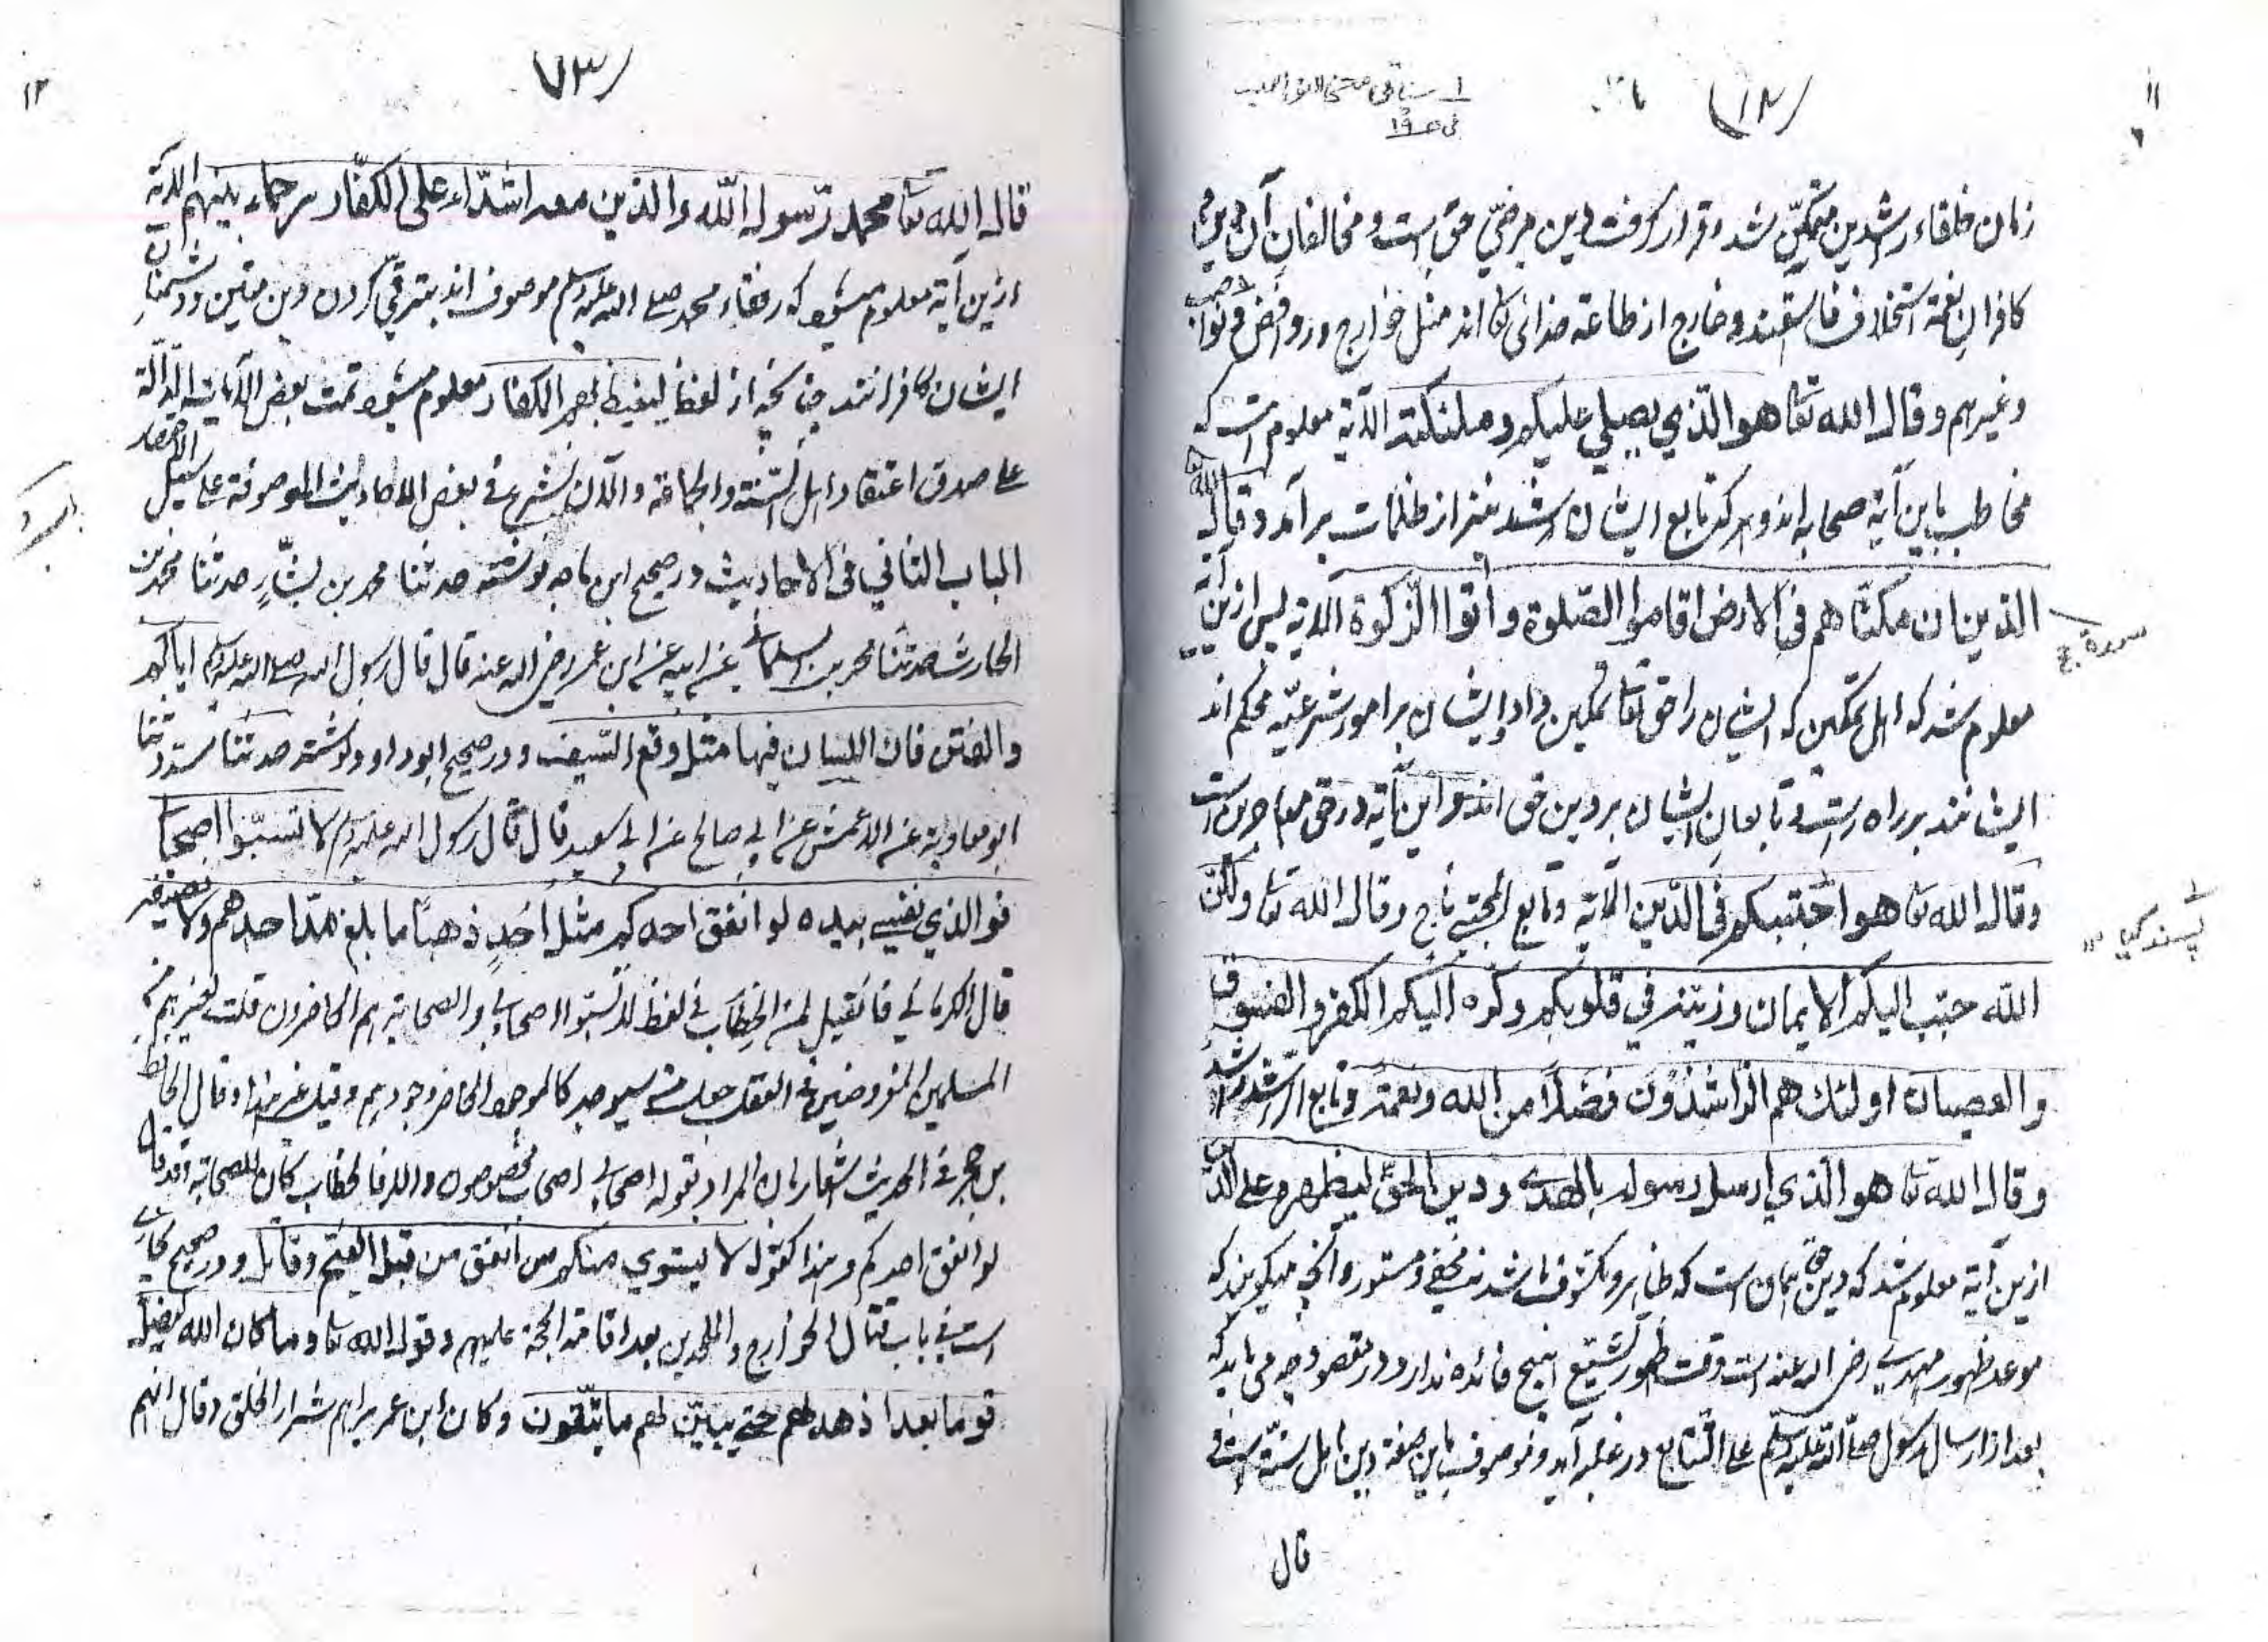 ۱۱
زمان خلفاء راشدین متمکن شد و قرار گرفت دین مرضی حق است و مخالفان آن دین و
کافران نعمة استخلاف فاسقند و خارج از طاعة خدائ تعا اند مثل خوارج و روافض و نواصب
و غیرهم و قال الله تعا هو الذي يصلي عليكم و ملئكته الآية معلوم است که
مخاطب باین آیة صحابه اند و هر که تابع ایشان باشد نیز از ظلمات برآمد و قال الله تعا
الذين ان مكناهم فى الارض اقاموا الصلوة و اتوا الزكوة الآية پس ازین آیة
معلوم شد که اهل تمکین که ایشان را حق تعا تمکین داد ایشان بر امور شرعیه محکم اند
ایشانند بر راه راست و تابعان ایشان بر دین حق اند و این آیة در حق مهاجرین است
وقال الله تعا هو اجتبیکم فی الدین الآیة و تابع المجتبی ناج و قال الله تعا ولکن
الله حبب اليكم الايمان وزينه في قلوبكم وكره اليكم الكفر و الفسوق
و العصيان اولئك هم الراشدون فضلاً من الله ونعمة و تابع الراشد راشد
وقال الله تعا هو الذي ارسل رسوله بالهدى ودين الحق ليظهره على الدين
ازین آیة معلوم شد که دین حق همان است که ظاهر و مکشوف باشد نه مخفی و مستور و آنچه میگویند که
موعد ظهور مهدي رضی الله عنه است وقت ظهور تشیع هیچ فائده ندارد و در مقصود چه می باید که
بعد از ارسال رسول صلى الله عليه وسلم على التتابع در غلبه آید و موصوف باین صفة دین اهل سنة است
قال
سورة حج
پسند کیا ۱۲
۱۲
۷۳
قال الله تعا محمد رسول الله والذين معه اشداء على الكفار رحماء بينهم الآية
ازین آیة معلوم میشود که رفقاء محمد صلى الله عليه وسلم موصوف اند بترقی کردن دین متین و دشمنان
ایشان کافرانند چنانچه از لفظ ليغيظ بهم الكفار معلوم میشود تمت بعض الآيات الدالة
على صدق اعتقاد اهل السنة والجماعة والآن نشرع في بعض الاحاديث الموصوفة على سبيل الاختصار
الباب الثاني فى الاحاديث در صحیح ابن ماجه نوشته حدثنا محمد بن بشار حدثنا محمد بن
الحارث حدثنا محمد بن السلماني عن ابيه عن ابن عمر رضى الله عنه قال قال رسول الله صلى الله عليه وسلم اياكم
والفتن فان اللسان فيها مثل وقع السيف و در صحیح ابو داود نوشته حدثنا مسدد ثنا
ابو معاوية عن الاعمش عن ابي صالح عن ابي سعيد قال قال رسول الله عليه وسلم لا تسبوا اصحابي
فوالذي نفسي بيده لو انفق احدكم مثل أحد ذهبا ما بلغ مد احدهم ولا نصيفه
قال الكرماني فان قيل لمن الخطاب في لفظ لا تسبوا اصحابي والصحابة هم الحاضرون قلت لغيرهم من
المسلمين المفروضين في العقل جعل من سيوجد كالموجود الحاضر وجودهم وقيل غير هذا وقال الحافظ
بن حجر في الحديث اشعار بان المراد بقوله اصحابي اصحاب مخصوصون والا فالخطاب كان للصحابة وقد قال
لو انفق احدكم و هذا كقوله لا يستوي منكم من انفق من قبل الفتح وقاتل و در صحیح بخاري
است في باب قتال الخوارج والملحدين بعد اقامة الحجة عليهم وقوله الله تعا وما كان الله ليضل
قوما بعد اذ هداهم حتى يبين لهم ما يتقون و كان ابن عمر يراهم شرار الخلق وقال انهم